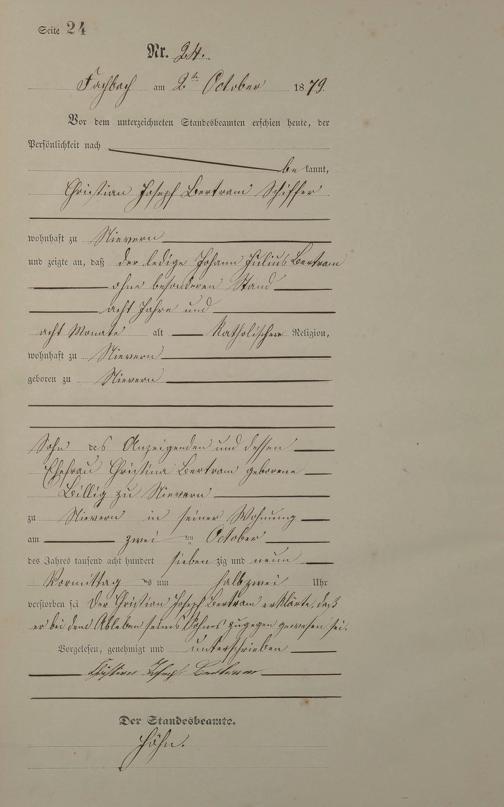 Seite 24
Nr. 24.
Fachbach am 2ten October 1879.
Vor dem unterzeichneten Standesbeamten erschien heute, der
Persönlichkeit nach
be kannt,
Christian Joseph Bertram Schiffer
wohnhaft zu Nievern
und zeigte an, daß der ledige Johann Julius Bertram
ohne besonderen Stand
acht Jahre und
acht Monate alt Katholischer Religion,
wohnhaft zu Nievern
geboren zu Nievern
Sohn des Anzeigenden und dessen
Ehefrau Christina Bertram geborene
Billig zu Nievern
zu Nievern in seiner Wohnung
am zwei ten October
des Jahres tausend acht hundert sieben zig und neun
Vormittag s um halb zwei Uhr
verstorben sei Der Christian Joseph Bertram erklärte, daß
er bei dem Ableben seines Sohnes zugegen gewesen sei.
Vorgelesen, genehmigt und unterschrieben
Christian Joseph Bertram
Der Standesbeamte.
Höhn.